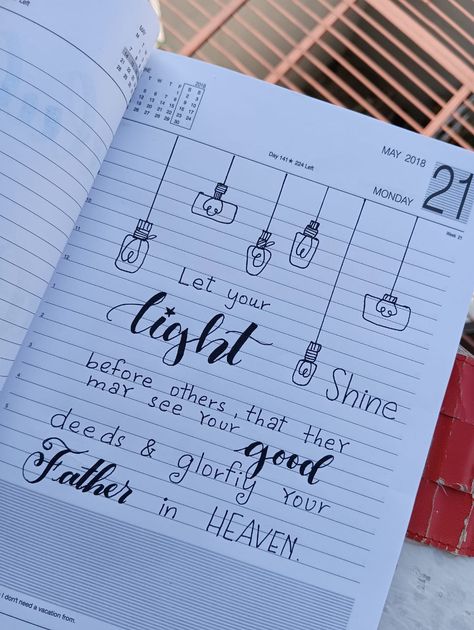 Left
2018
Day 141★ 224 Left
MAY 2018
MONDAY
21
Week 21
Let your
light
Shine
before others, that they
may see your good
deeds & glorfiy your
Father in HEAVEN.
I don't need a vacation from.